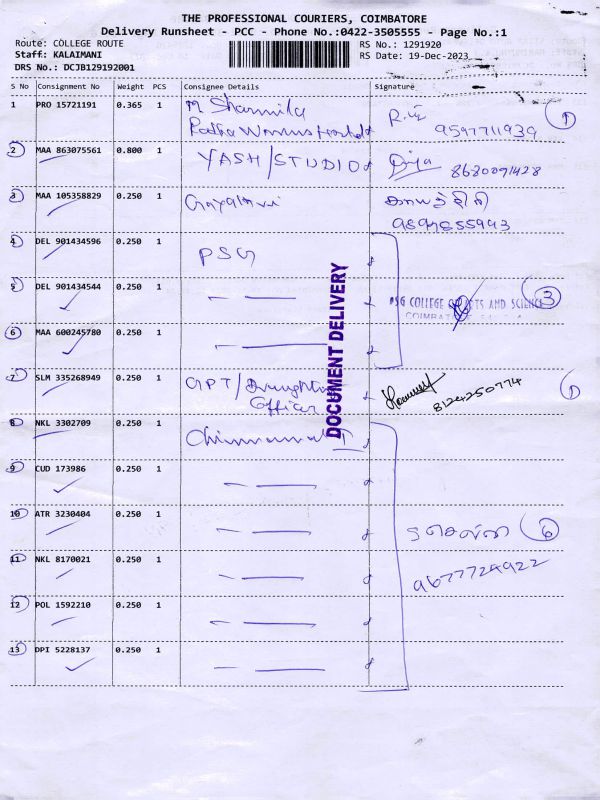 THE PROFESSIONAL COURIERS, COIMBATORE
Delivery Runsheet - PCC - Phone No.:0422-3505555 - Page No.:1
Route: COLLEGE ROUTE RS No.: 1291920
Staff: KALAIMANI RS Date: 19-Dec-2023
DRS No.: DCJB129192001
S No Consignment No Weight PCS Consignee Details Signature
1 PRO 15721191 0.365 1 M Sharmila 1
9597711939
2 MAA 863075561 0.800 1 YASH/STUDIO Priya 8680091428
3 MAA 105358829 0.250 1 Gayathri
4 DEL 901434596 0.250 1 PSG
5 DEL 901434544 0.250 1 — — PSG COLLEGE ARTS AND SCIENCE 3
COIMBATORE
6 MAA 600245780 0.250 1 — —
DOCUMENT DELIVERY
7 SLM 335268949 0.250 1 GPT/ 8124250774 1
Officer
8 NKL 3302709 0.250 1
9 CUD 173986 0.250 1 — —
10 ATR 3230404 0.250 1 — — 6
11 NKL 8170021 0.250 1 — — 9677724922
12 POL 1592210 0.250 1 — —
13 DPI 5228137 0.250 1 — —